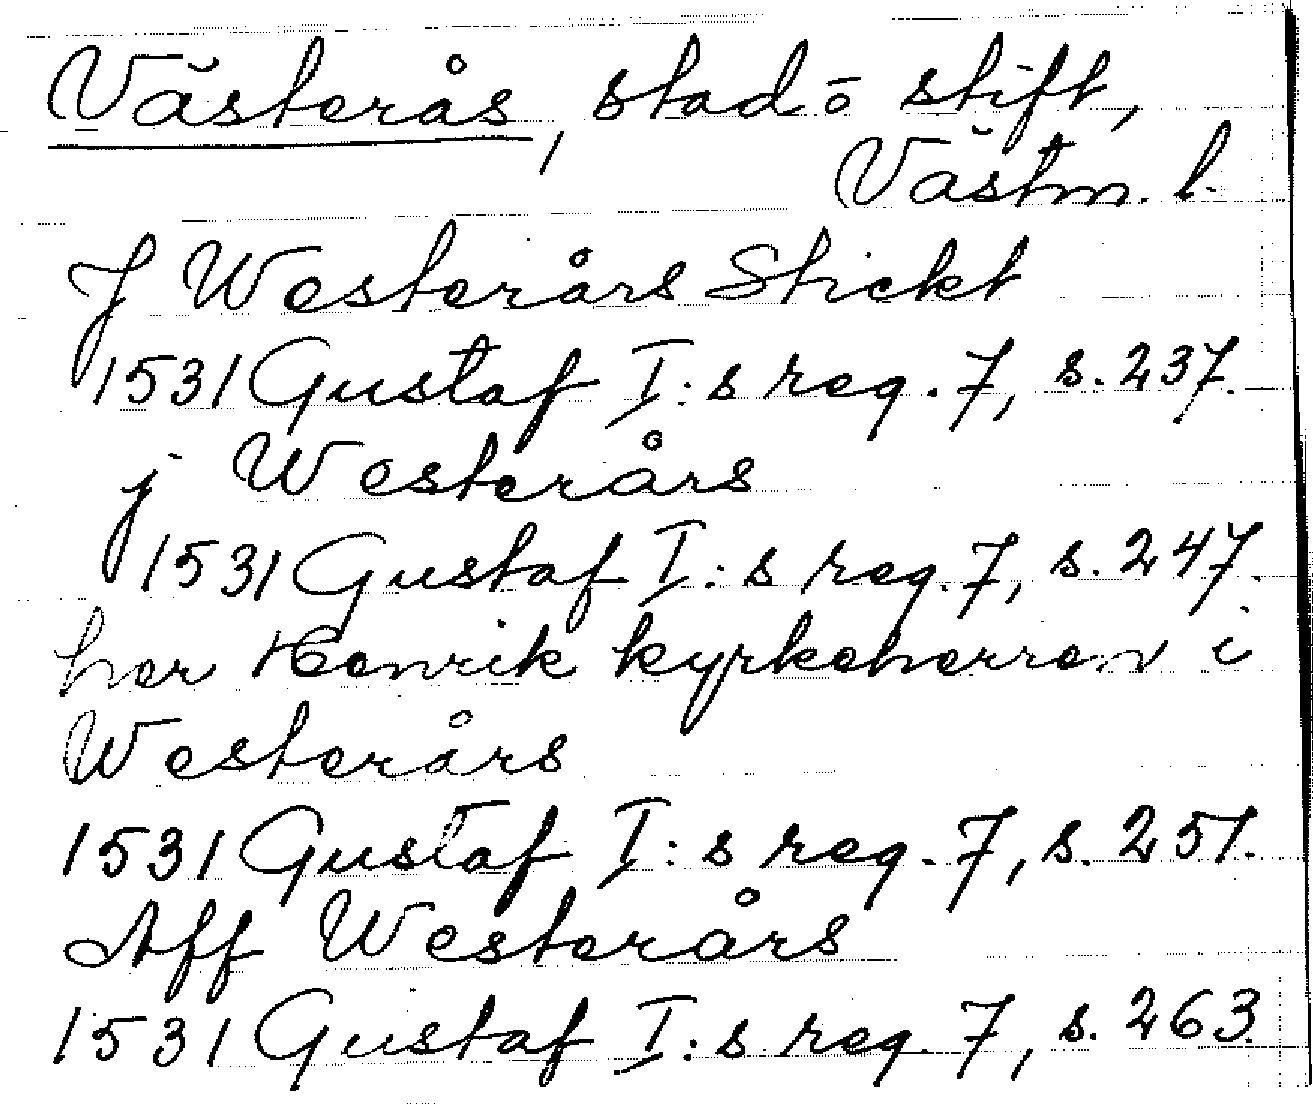 Västerås, stad o stift,
Västm. l.
J Westerårs Stickt
1531 Gustaf I:s reg. 7, s. 237.
j Westerårs
1531 Gustaf I:s reg. 7, s. 247.
her Henrik kyrkeherren i
Westerårs
1531 Gustaf I:s reg. 7, s. 251.
Aff Westerårs
1531 Gustaf I:s reg. 7, s. 263.